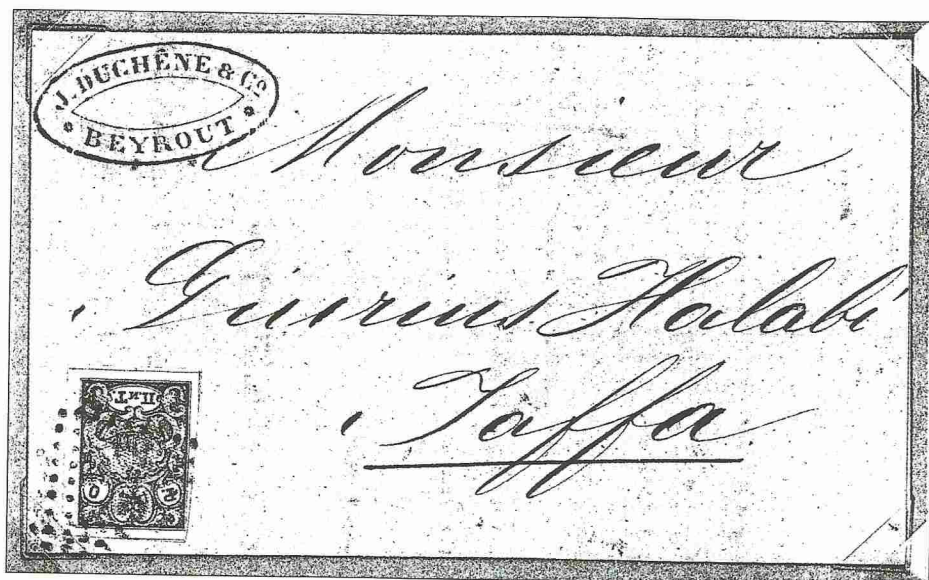 J. DUCHÊNE & Cº
BEYROUT
Monsieur
Halabi
Jaffa